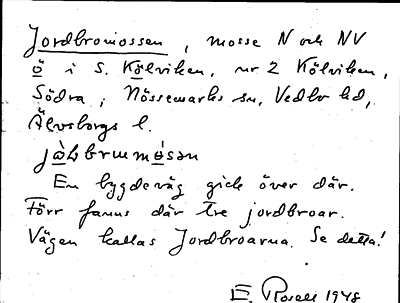 Jordbromossen, mosse N och NV
ö i S. Kölviken, nr 2 Kölviken,
Södra, Nössemarks sn, Vedbo hd,
Älvsborgs l.
En bygdeväg gick över där.
Förr fanns där tre jordbroar.
Vägen kallas Jordbroarna. Se detta!
E. Rosell 1948